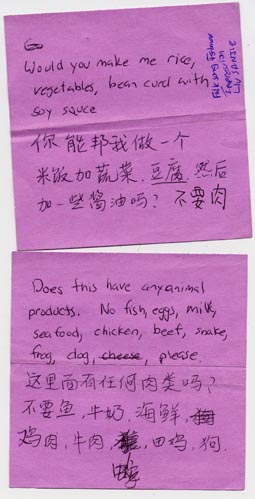 Would you make me rice,
vegetables, bean curd with
soy sauce
你能帮我做一个
米饭加蔬菜.豆腐.然后
加一些酱油吗？不要肉
Does this have any animal
products. No fish, eggs, milk,
seafood, chicken, beef, snake,
frog, dog, cheese, please.
这里面有任何肉类吗？
不要鱼,牛奶,海鲜,
鸡肉,牛肉,田鸡,狗.